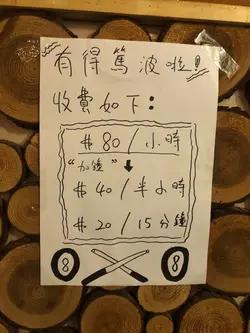 有得篤波啦!!
收費如下：
$80/小時
“加鐘”↓
$40/半小時
$20/15分鐘
8 8